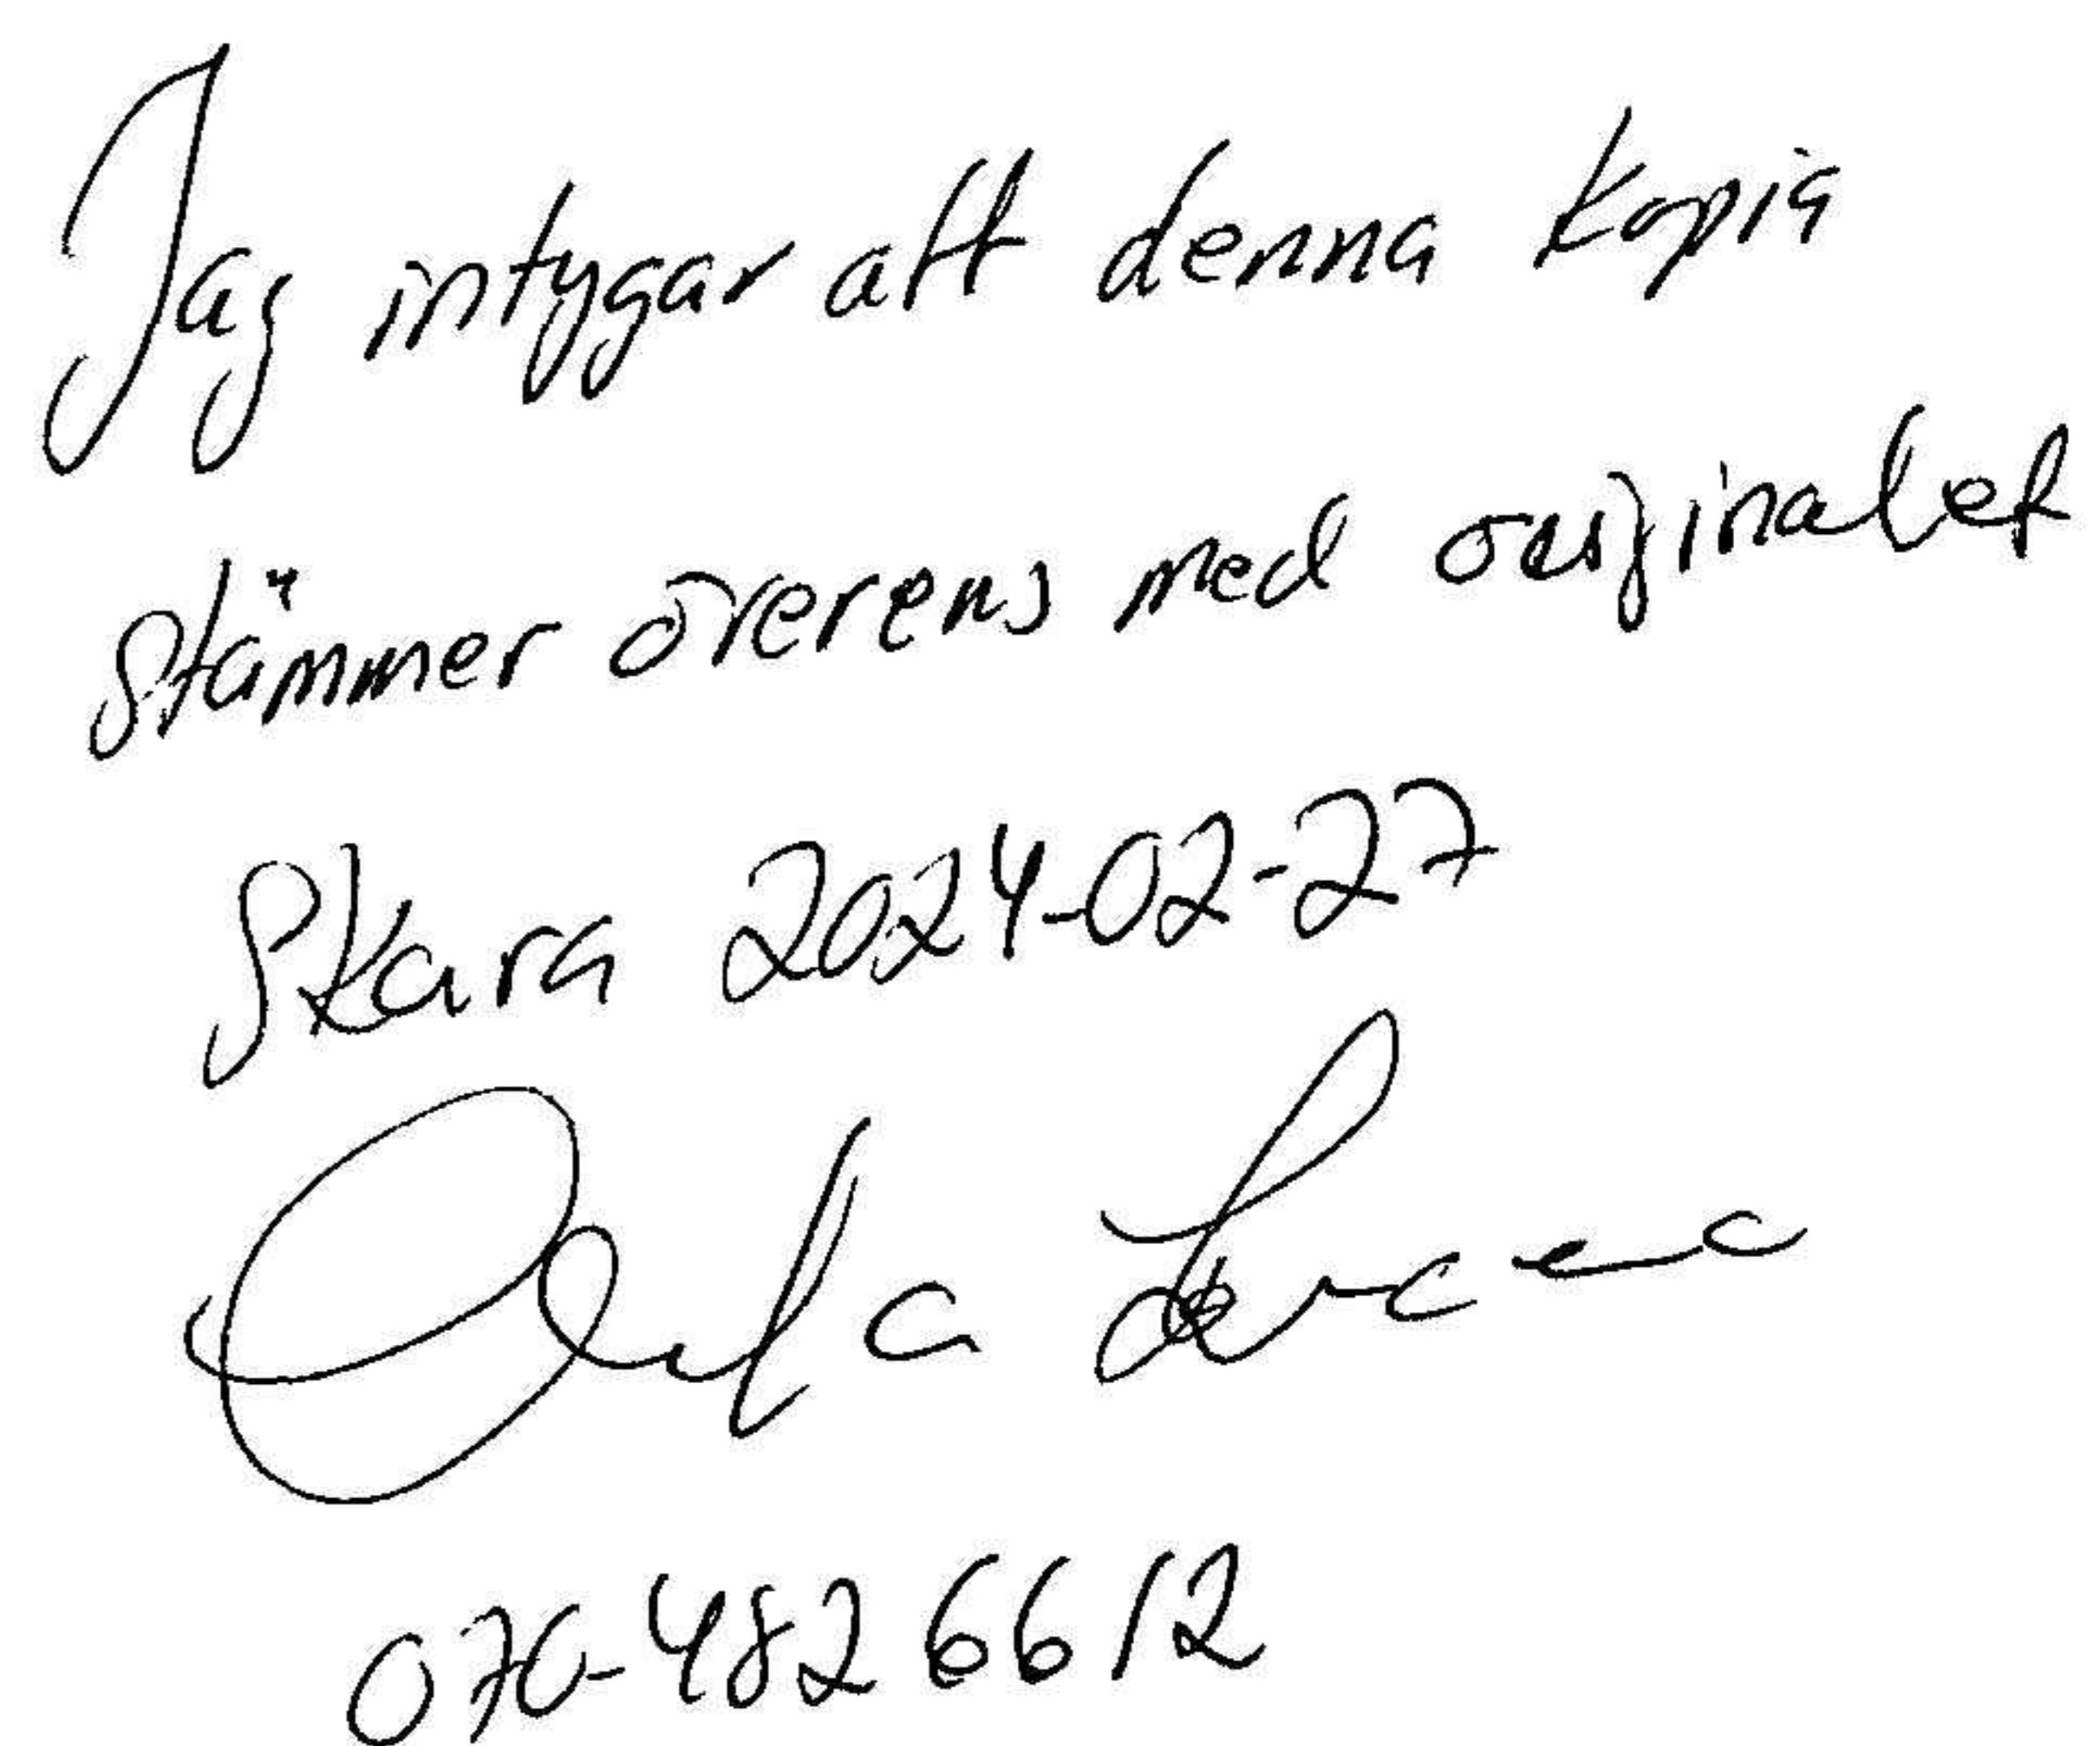 Jag intygar att denna kopia
stämmer överens med originalet
Skara 2024-02-27
070-482 66 12